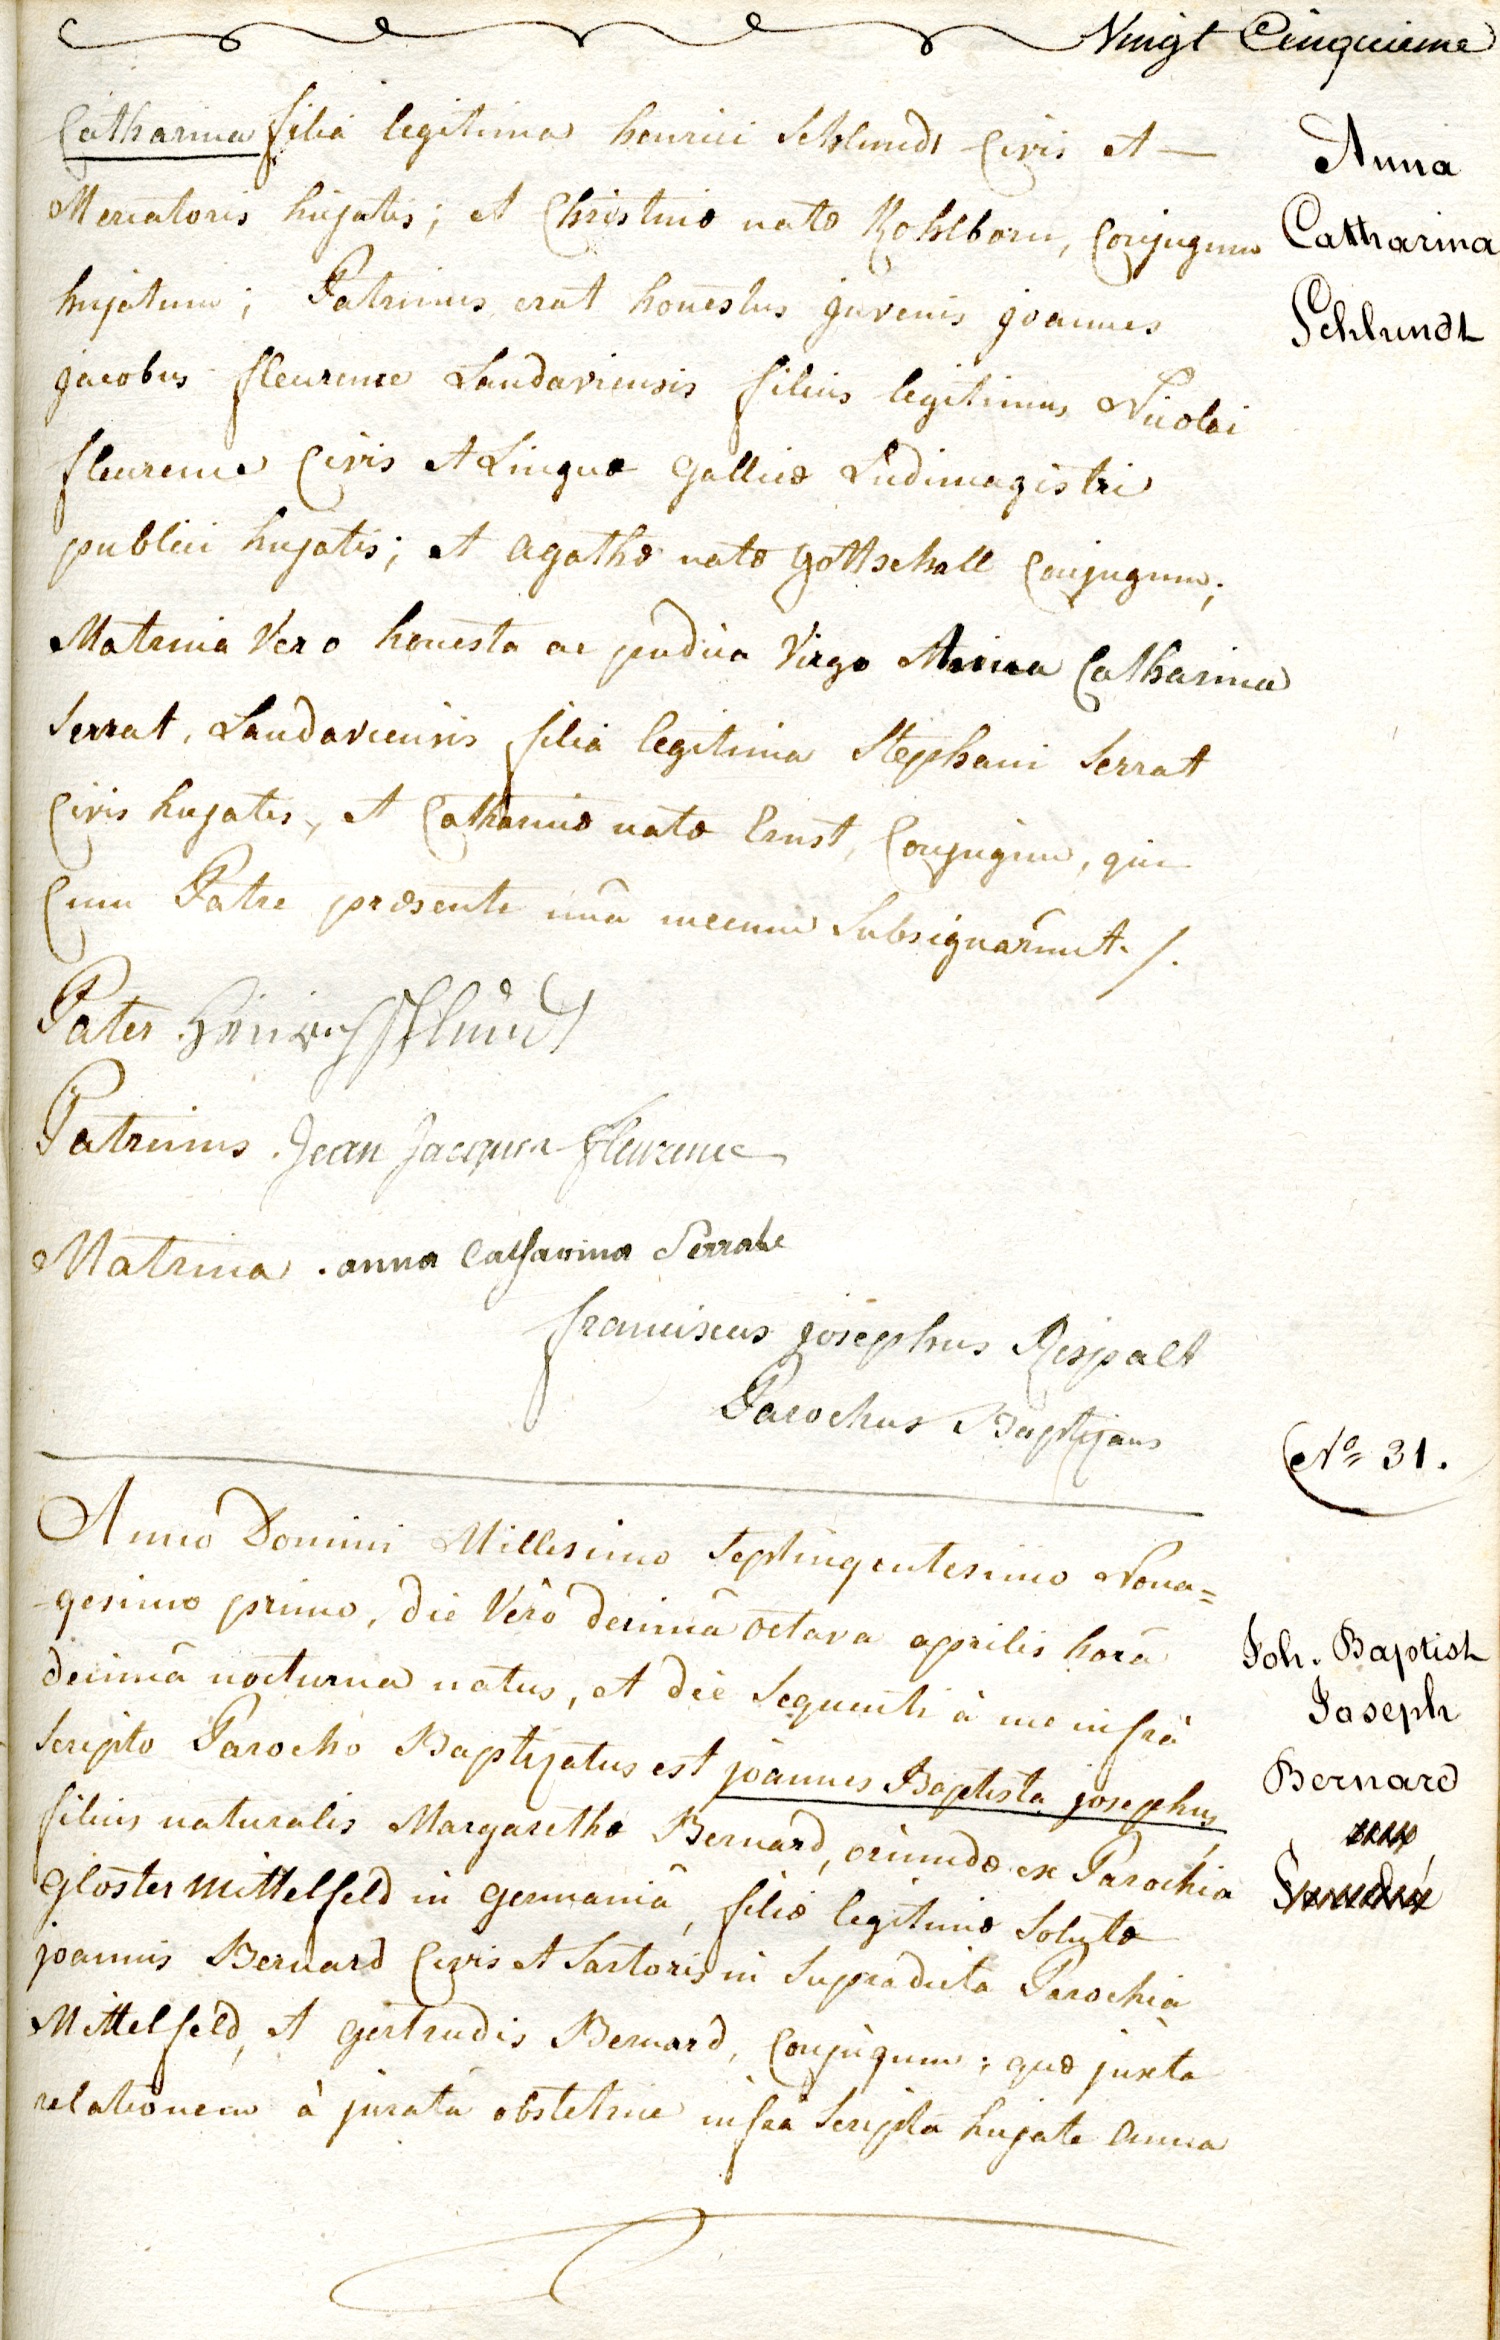 Vingt Cinquieme
Catharina filia legitima henrici Schlundt Civis et
Mercatoris hujatis; et Christinæ natæ Kohlborn, Conjugum
hujatum; Patrinus erat honestus juvenis joannes
jacobus fleurence Landaviensis filius legitimus Nicolai
fleurence Civis et Linguæ gallicæ Ludimagistri
publici hujatis; et agathæ natæ gottschall Conjugum;
Matrina Vero honesta ac pudica Virgo Anna Catharina
Serrat, Landaviensis filia legitima Stephani Serrat
Civis hujatis, et Catharinæ natæ Ernst, Conjugum, qui
Cum Patre præsente unâ mecum Subsignarunt. /.
Pater Heinrich Schlundt
Patrinus Jean Jacques fleurence
Matrina anna Catharina Serrate
franciscus josephus Rispalt
Parochus Baptizans
Anna
Catharina
Schlundt
Nº 31.
Anno Domini Millesimo Septingentesimo Nona=
gesimo primo, die Vêro decimâ octava aprilis horâ
decimâ nocturna natus, et die Sequenti à me infrà
Scripto Parocho Baptizatus est joannes Baptista josephus,
filius naturalis Margarethæ Bernard, oriundæ ex Parochia
gloster Mittelfeld in germaniâ, filiæ legitimæ Solutæ
joannis Bernard Civis et Sartoris in Supradicta Parochia
Mittelfeld, et gertrudis Bernard, Conjugum; quæ juxta
relationem à juratâ obstetrice infrà Scripta hujate anna
Joh. Baptist
Joseph
Bernard